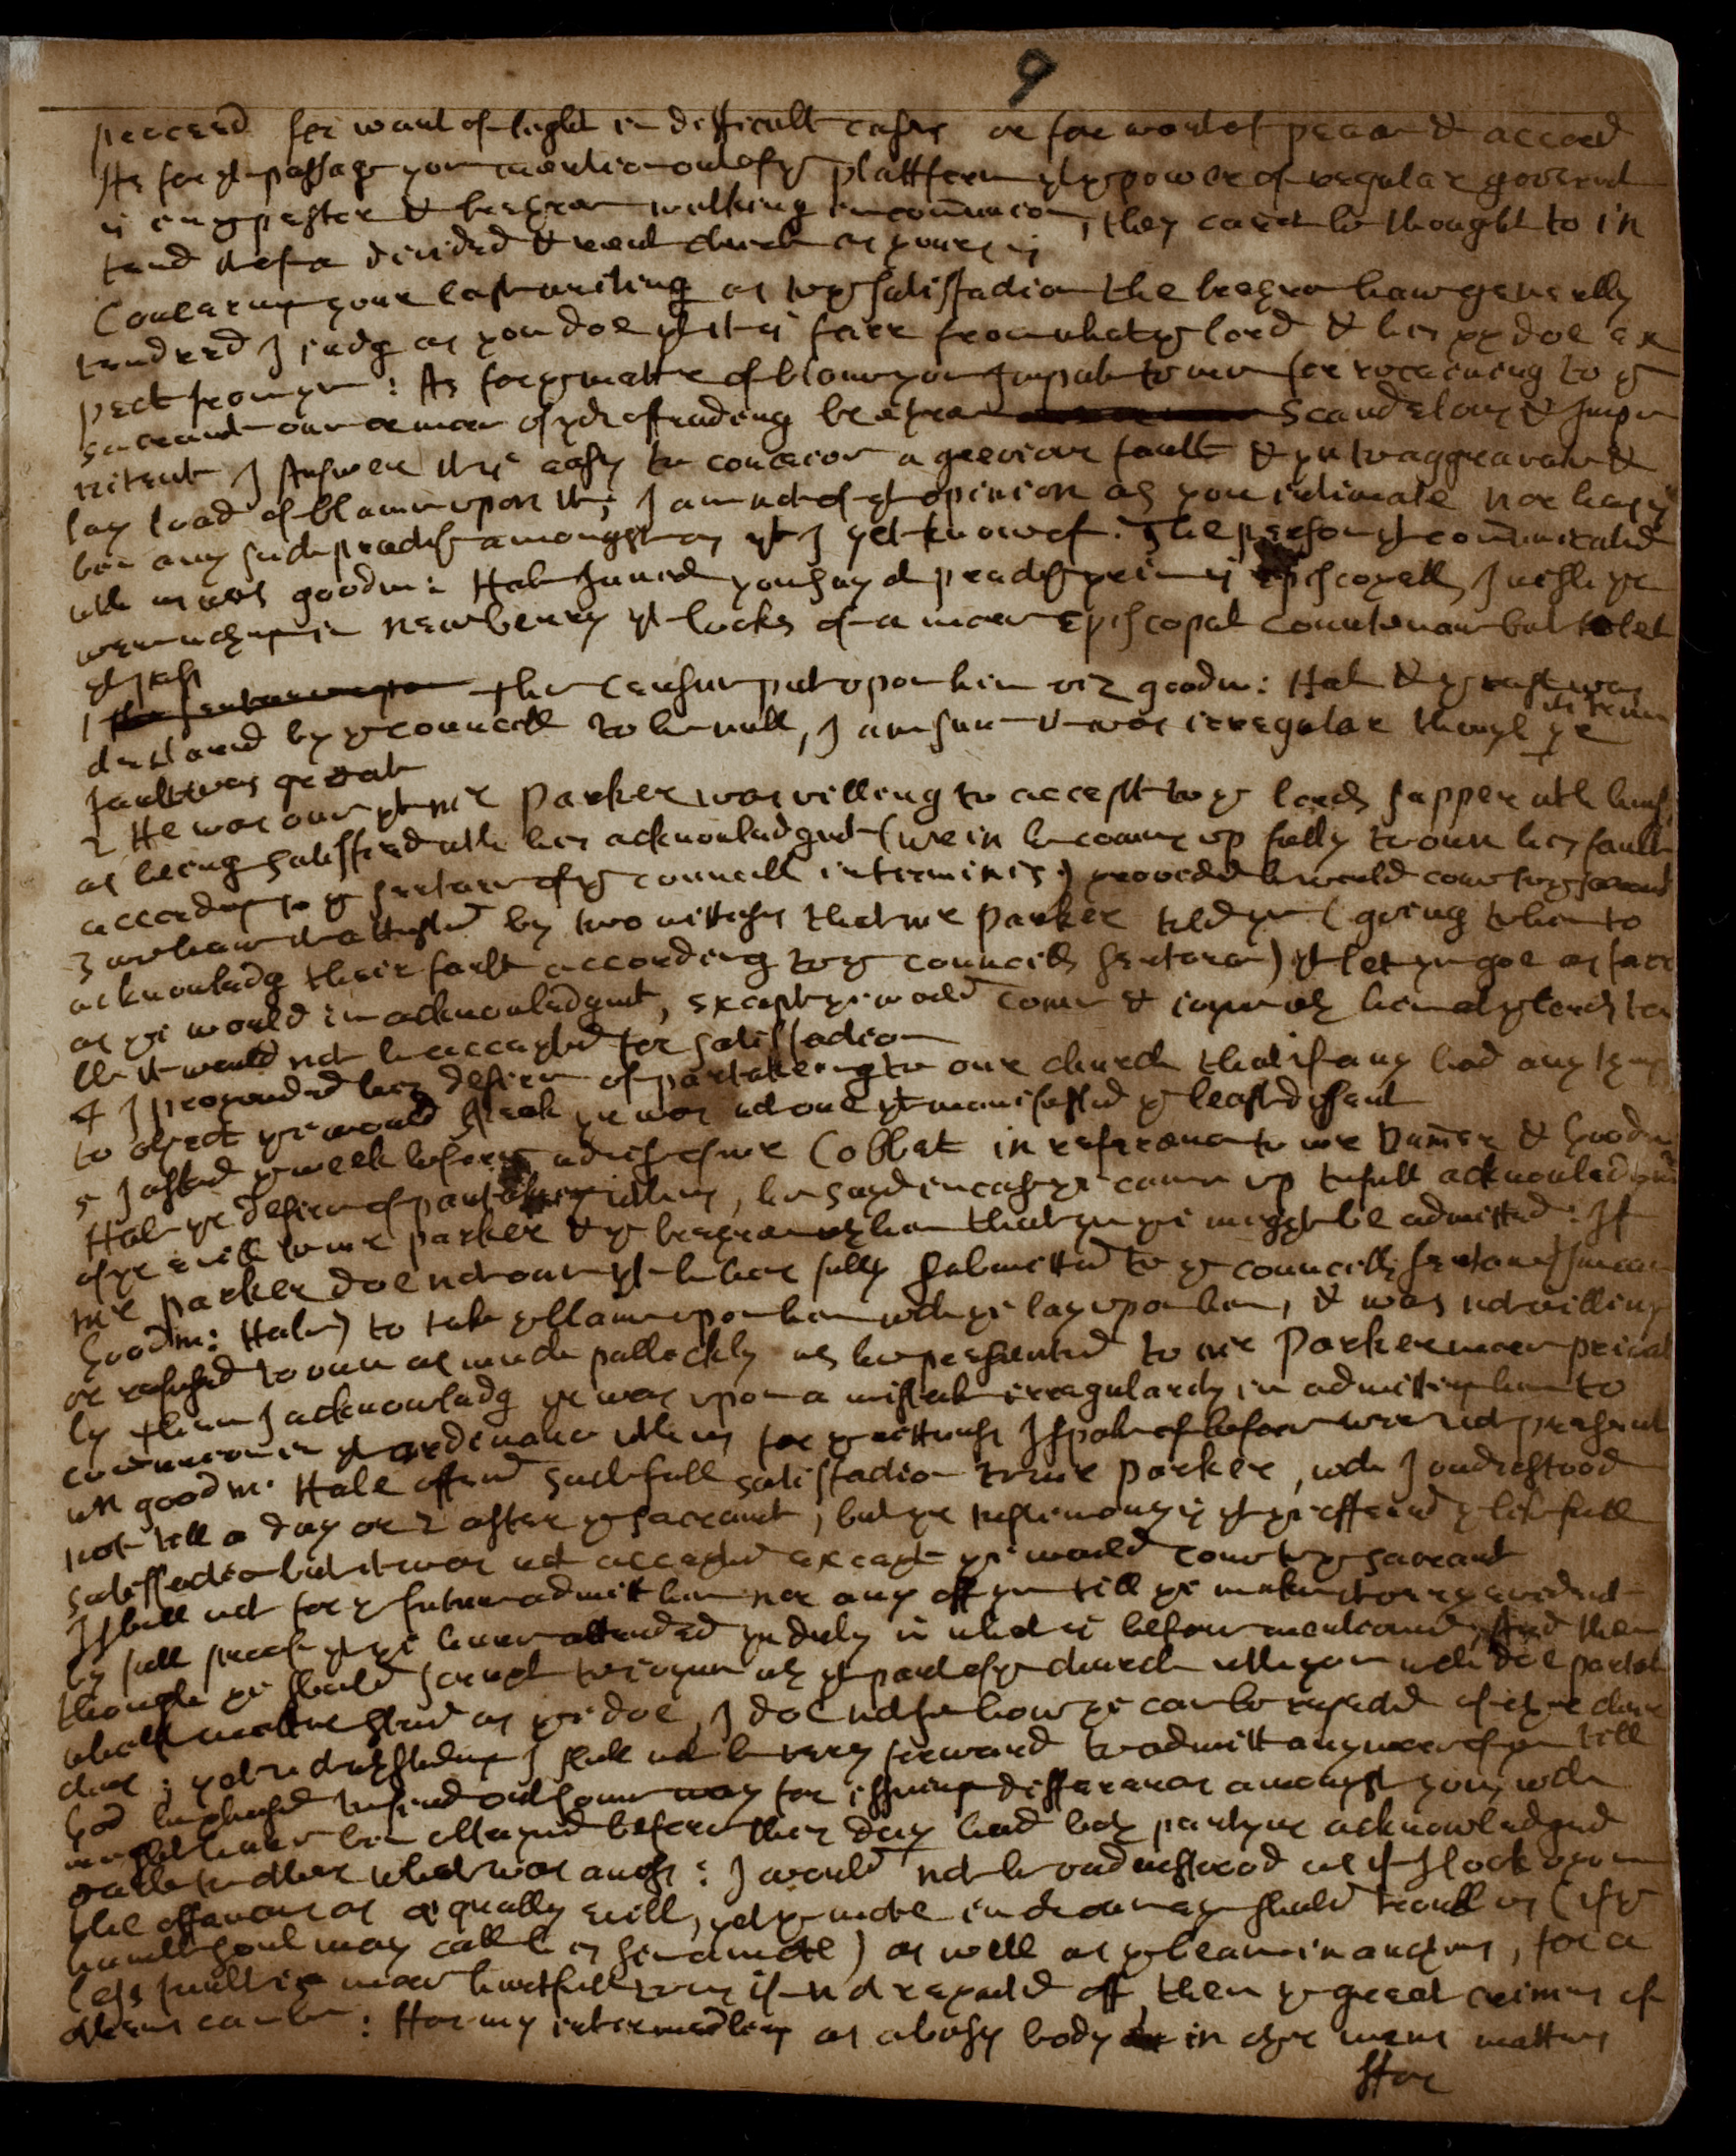 9
proceed for want of light in difficult cases or for want of peace & accord
As for yt passage you mention out of ye plattform yt ye power of regular governt
is in ye pastor & brethren walking in comunion, they canot be thought to in
tend it of a devided & rent church as yours is
Concerning your last writing as to ye satisfaction the brethren have generally
tendred I judg as you doe yt it is farr from what ye lord & his pp doe ex
pect from ym : As for ye matter of blame you Impute to me for receiving to ye
sacramt one or more of ye offending brethren scandelous & Impe
nitent I Answer it is easy to conceive a greevious fault & yn to aggravate &
lay load of blame upon it; I am not of yt opinion as you intimate nor hath
ben any such practise amongst us yt I yet know of. The person yt comunicated
with us was goodm: Hale Indeed you say ye practise is episcopall, I wish yr
were nothing in newberry yt looks of a more Episcopal countenance but to let
yt pass
1 the Censure put upon him viz goodm: Hale & ye rest was
declared by ye councill to be null, I am sure it was irregular though ye
fault was great
2 He was one yt mr Parker was willing to accept to ye lords supper with him
as being satisfied with his acknowledgmt (wrin he coming up fully to own his fault
according to ye sentence of ye councill in terminis) provided he would come to ye sacramt
3 we have it attested by two witteses that mr Parker told ym (going to him to
acknowledg their fault according to ye councills sentence) yt let ym goe as farr
as yi would in acknowledgmt, except yi would come & joyn wth him at ye lords ta
ble it would not be accepted for satisfaction
4 I propounded his desire of partaking to our church that if any had any thing
to object yi would speak yr was not one yt manifested ye least dissent
5 I asked ye week before ye advise of mr Cobbet in reference to mr Dumer & Goodm
Hale yr desire of partaking with us, he sayd in case yi came up to full acknowledgmt
of yr evill to mr parker & ye brethren wth him that yn yi might be admitted: If
mr parker doe not own yt he have fully submitted to ye councills sentence (I mean
Goodm: Hale) to take ye blame upon him wch yi lay upon him, & was not willing
or refused to own as much publickly as he presented to mr Parker more privat
ly then I acknowledg yr was upon a mistake irregularity in admitting him to
comunion in yt ordinance with us for ye wittness I spake of before were not present
wn goodm. Hale offered such full satisfaction to mr parker, wch I understood
not till a day or 2 after ye sacramt, but yr testimony is yt yi offered ye like full
satisfaction but it was not accepted except yi would come to ye sacramt
I shall not for ye future admitt him nor any off ym till yi make it to me evident
by full proof yt yi have attended yr duty in what is before mentioned, And then
though yi should scruple to joyne wth yt part of ye church with you wch doe partake
whilst matters stand as yi doe, I doe not see how yi can be rejected if othr churc
does; yet notwthstanding I shall not be very forward to admitt any more of ym till
God be pleased to find out some way for issuing differences amongst you, wch
might have ben allayed before this day had both partyes acknowledged
each to other what was amiss: I would not be understood as if I look upon
the offences as equally evill, yet ye mote in our own eye should trouble us (if ye
humble soul may call his sin a mote) as well as ye beam in anothers, for a
less fault is more hurtfull to us if not repented off, then ye great crimes of
others can be: For my intermedling as a busy body in other mens matters